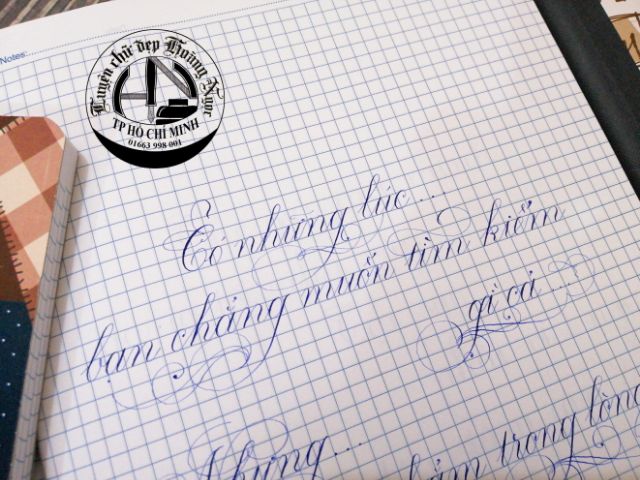 Notes:
Luyện chữ đẹp Hoàng Ngọc
TP HỒ CHÍ MINH
01663 998 001
Có những lúc...
bạn chẳng muốn tìm kiếm
gì cả...
Nhưng...
trong lòng